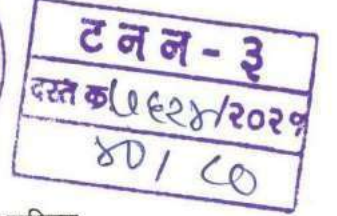 ट न न - ३
दस्त क ५६२४/२०२१
४०/ ८०